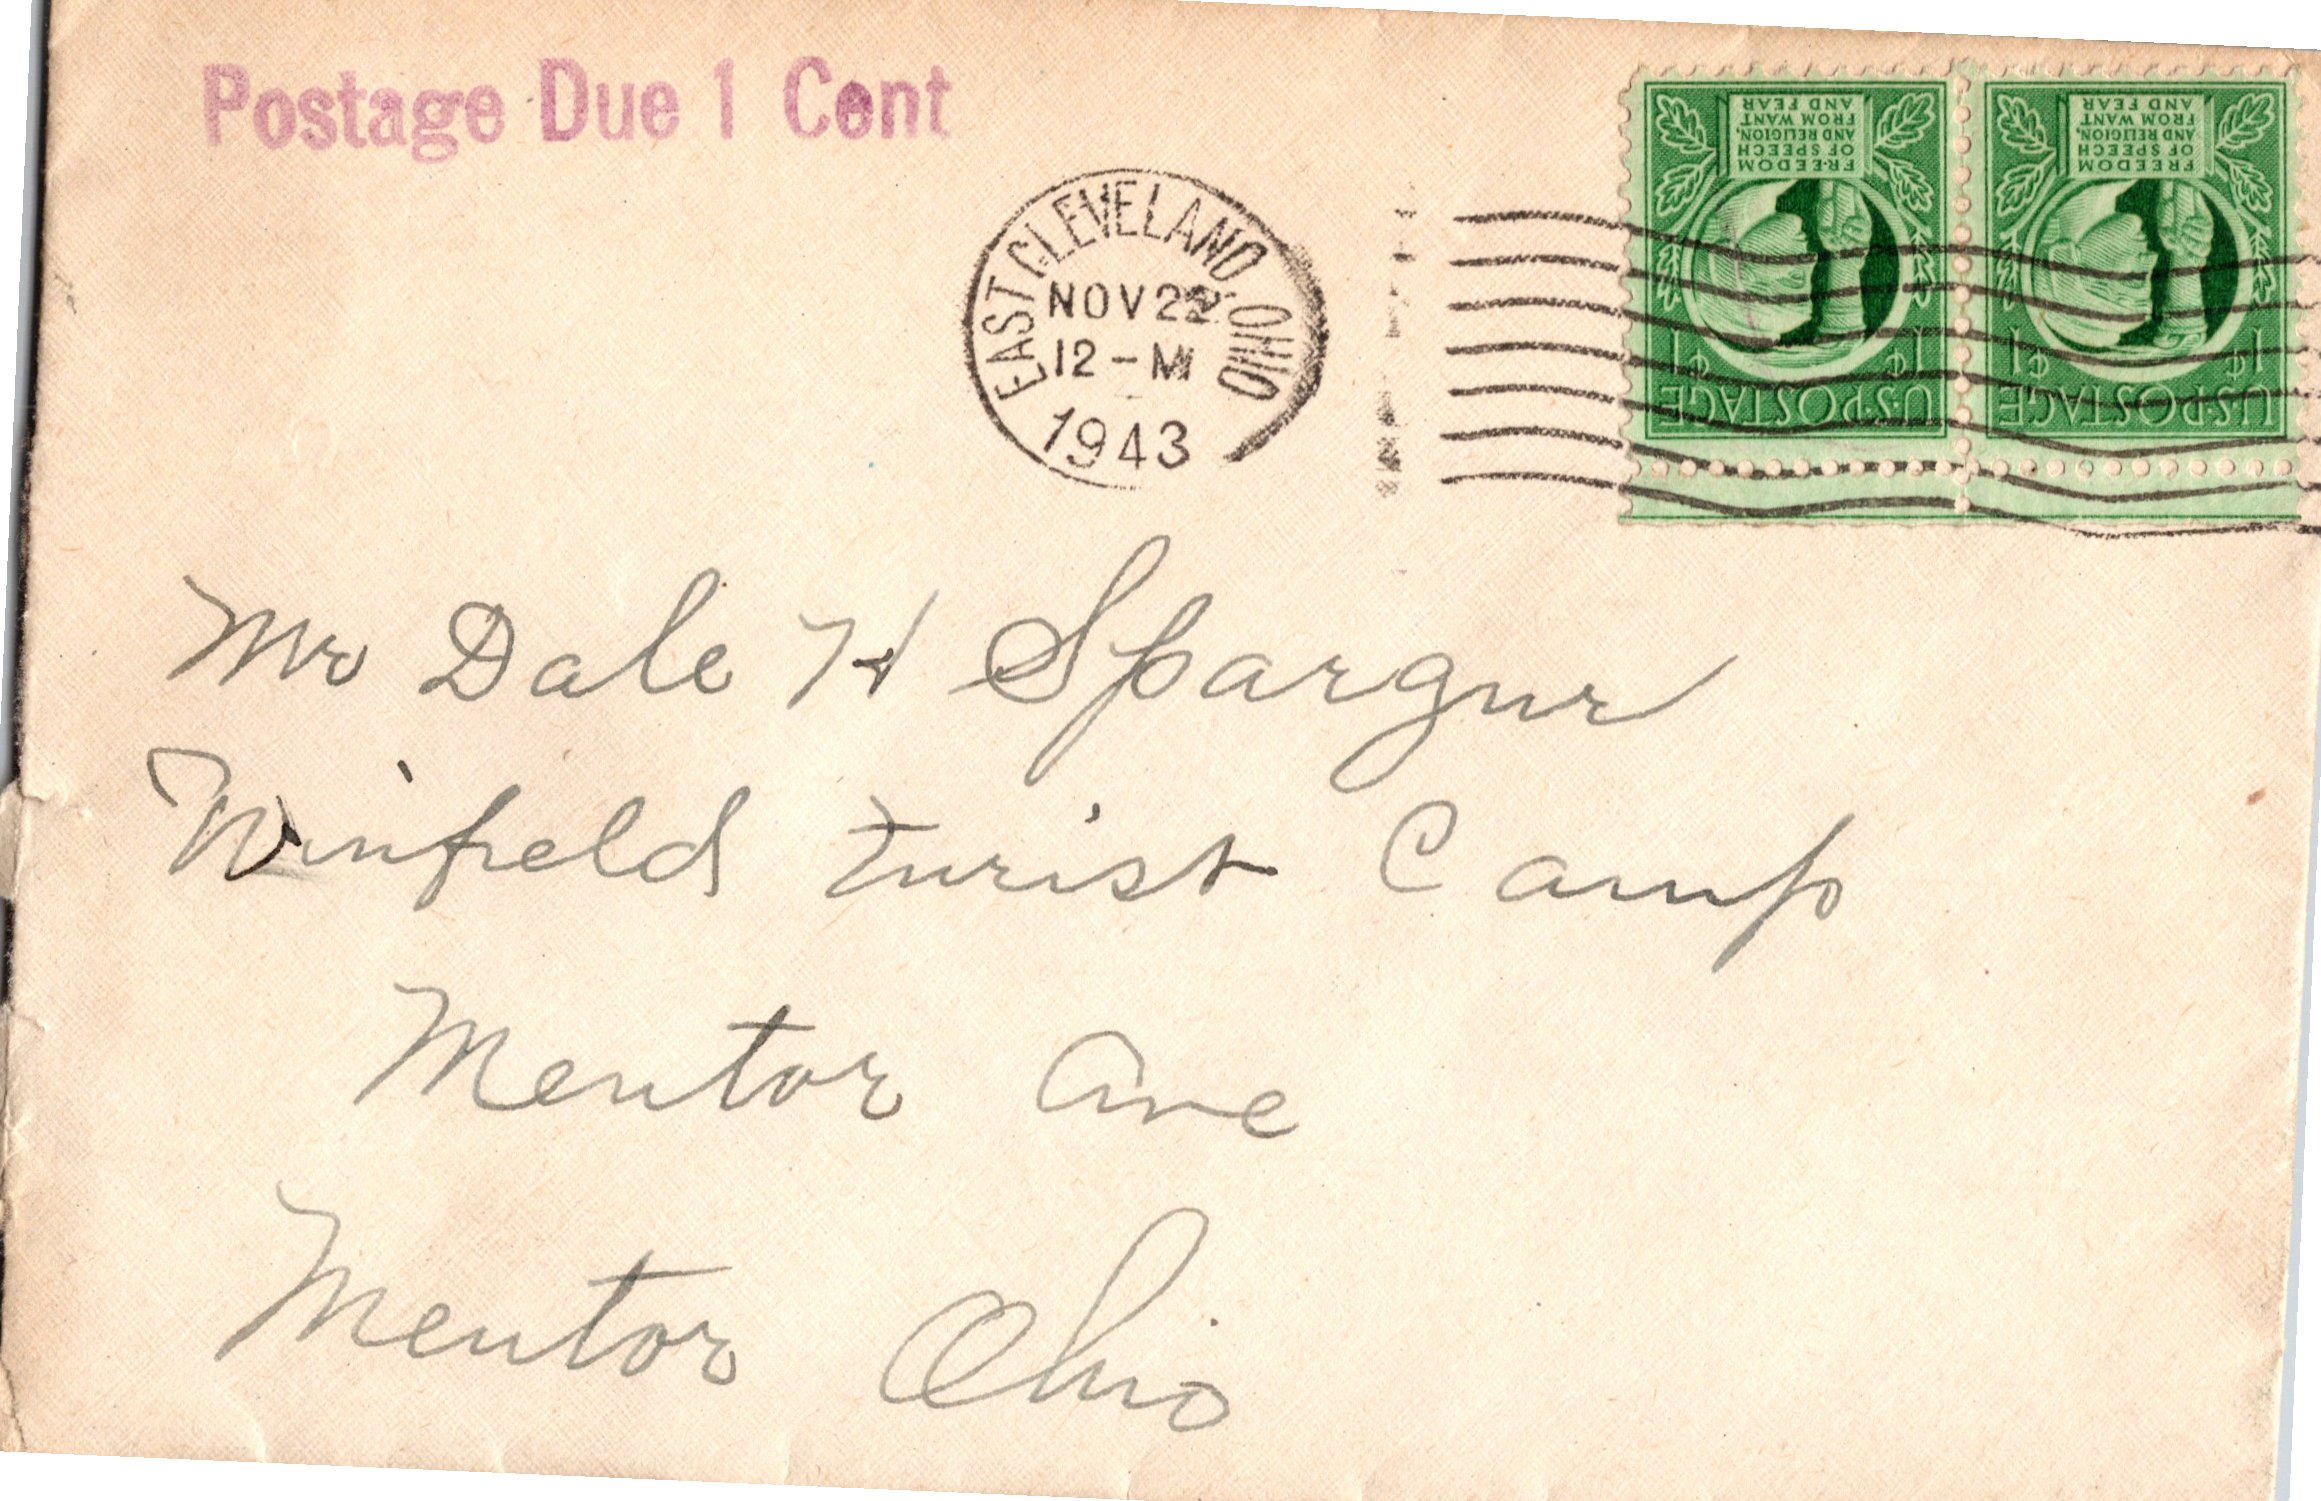 Postage Due 1 Cent
EAST CLEVELAND, OHIO
NOV 22
12 - M
1943
FREEDOM
OF SPEECH
AND RELIGION,
FROM WANT
AND FEAR
1¢ 1¢
U.S. POSTAGE
FREEDOM
OF SPEECH
AND RELIGION,
FROM WANT
AND FEAR
1¢ 1¢
U.S. POSTAGE
Mr Dale H Spargur
Winfield Turist Camp
Mentor Ave
Mentor Ohio